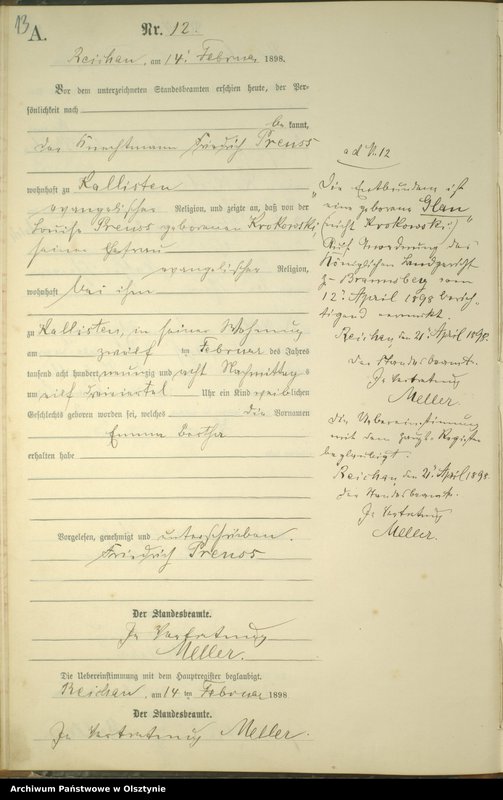 13
A.
Nr. 12.
Reichau, am 14t Februar 1898.
Vor dem unterzeichneten Standesbeamten erschien heute, der Per-
sönlichkeit nach
be kannt,
der Knechtmann Friedrich Preuss
wohnhaft zu Kallisten
evangelischer Religion, und zeigte an, daß von der
Louise Preuss geborenen Krokowski,
seiner Ehefrau
evangelischer Religion,
wohnhaft bei ihm
zu Kallisten, in seiner Wohnung
am zwölf ten Februar des Jahres
tausend acht hundert neunzig und acht Nachmittags
um elf dreiviertel Uhr ein Kind weiblichen
Geschlechts geboren worden sei, welches die Vornamen
Emma Bertha
erhalten habe
Vorgelesen, genehmigt und unterschrieben.
Friedrich Preuss
Der Standesbeamte.
In Vertretung
Meller.
Die Uebereinstimmung mit dem Hauptregister beglaubigt.
Reichau, am 14 ten Februar 1898
Der Standesbeamte.
In Vertretung Meller.
ad N. 12
"Die Entbundene ist
eine geborene Glau
(nicht Krokowski:)"
Auf Anordnung des
Königlichen Landgericht
z. Braunsberg vom
12t April 1898 berich-
tigend vermerkt.
Reichau, den 21t April 1898.
Der Standesbeamte.
In Vertretung
Meller.
Die Uebereinstimmung
mit dem Haupt-Register
beglaubigt.
Reichau, den 21t April 1898.
Der Standesbeamte.
In Vertretung
Meller.
Archiwum Państwowe w Olsztynie